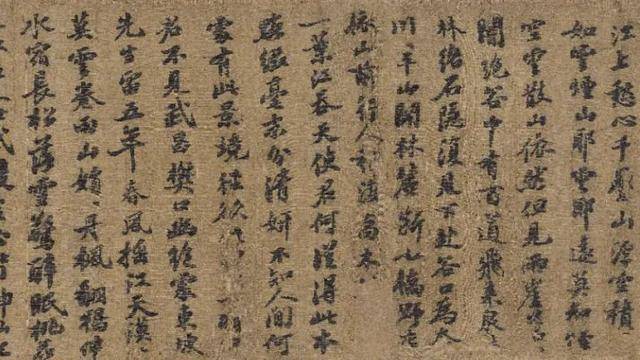 江上愁心千疊山浮空積
如雲煙山耶雲耶遠莫知煙
空雲散山依然但見兩崖蒼
闇絕谷中有百道飛來泉
林絡石隱復見下赴谷口為
川川平山開林麓斷小橋野店
依山前行人稍度喬木
一葉江吞天使君何從得此本
點綴毫末分清妍不知人間何
處有此境徑欲
君不見武昌樊口幽絕處東坡
先生留五年春風搖江天漠〻
莫雲卷雨山娟〻丹楓翻鴉伴
水宿長松落雪驚醉眠桃花